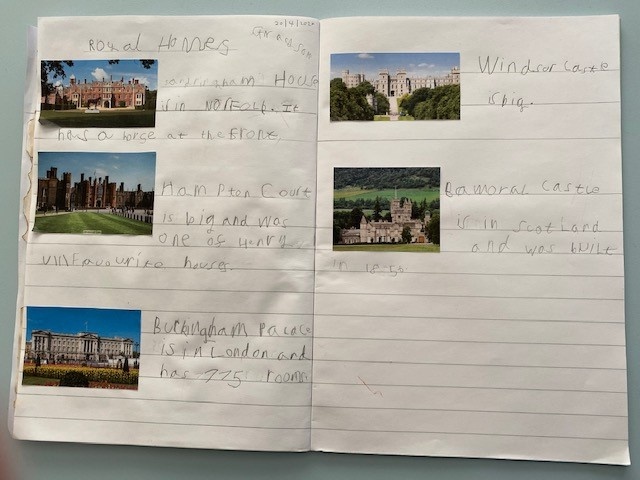 20/4/20
Royal Homes
House
is in NOrFOLk. It
has a large at the Front
Hampton Court
is big and was
one of Henry
VIII Favourite houses.
Buckingham Palace
is in London and
has 775 rooms
Windsor Castle
is big.
Bamoral Castle
is in Scotland
and was built
in